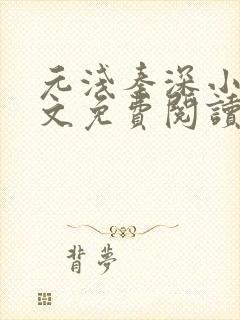 元淺秦深小
文免費閱讀
背夢